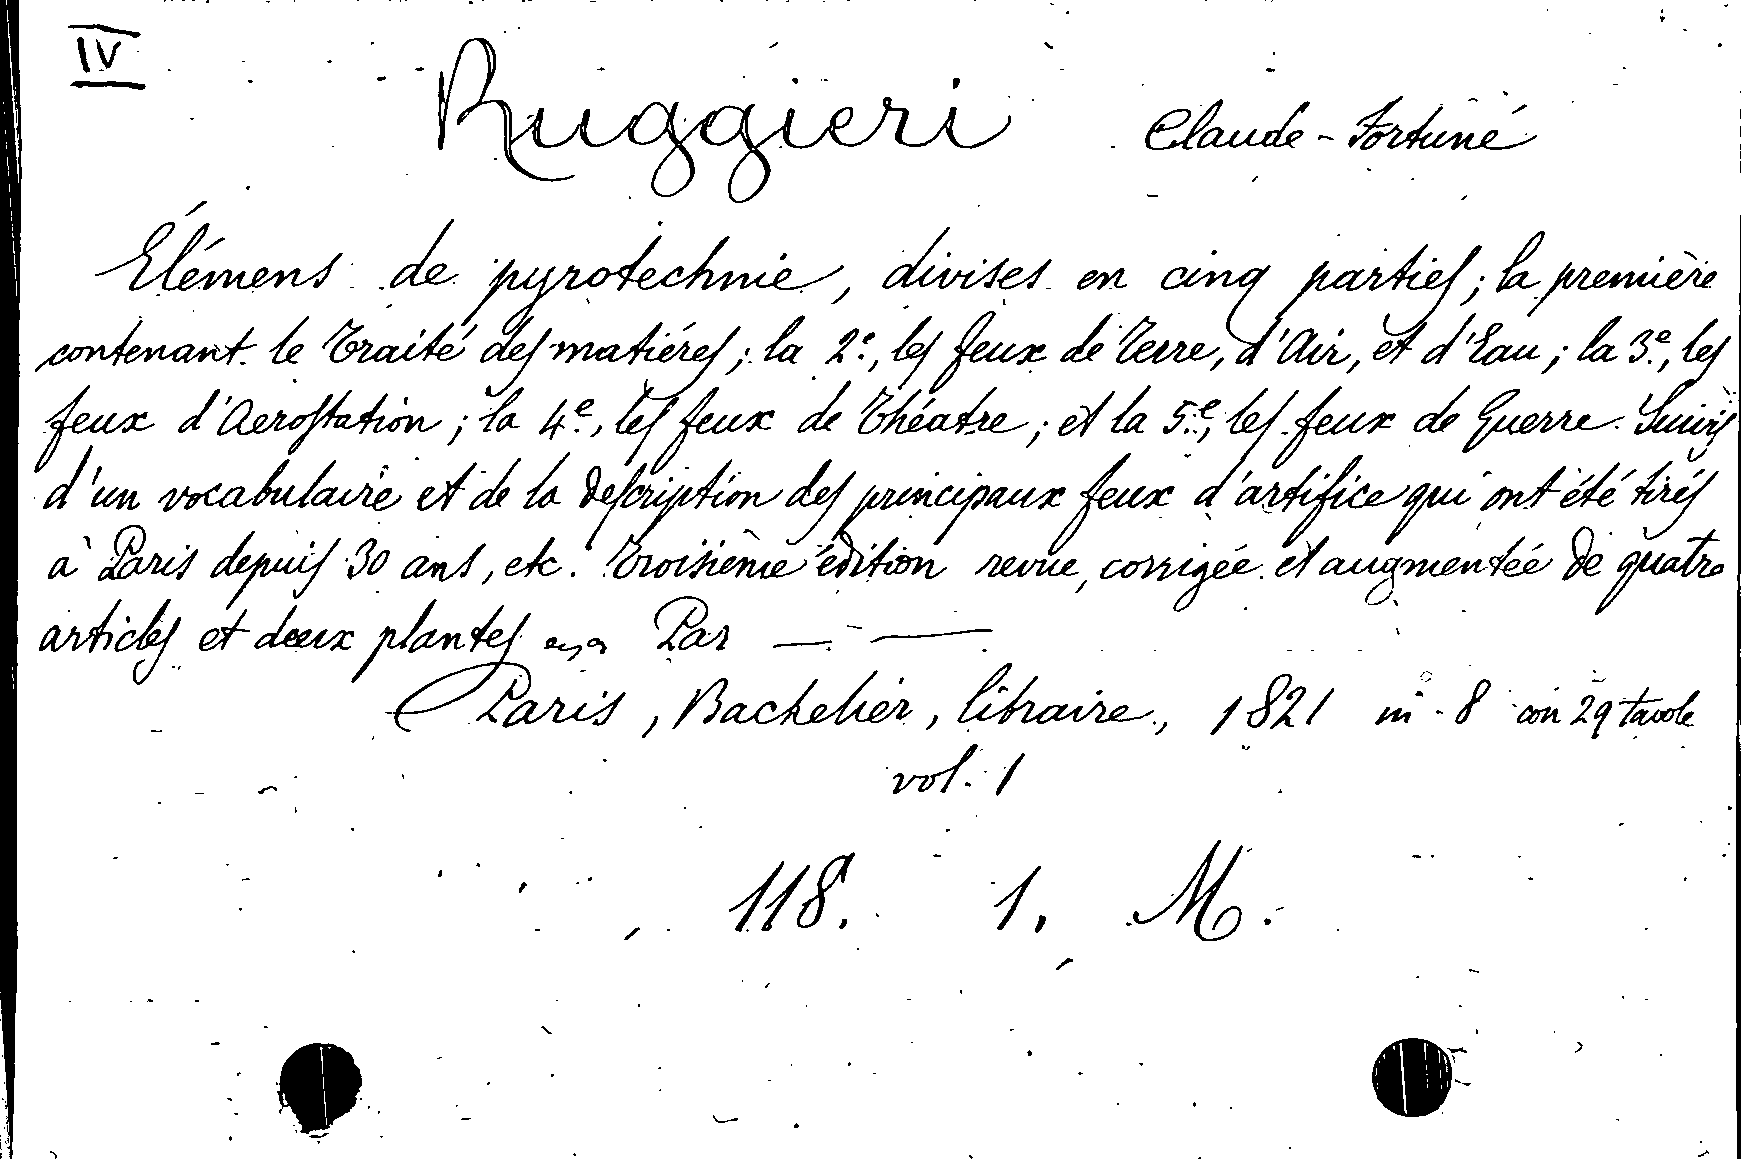 IV
Ruggieri Claude-Fortuné
Élémens de pyrotechnie, divises en cinq parties; la première
contenant le Traité des matiéres; la 2e., les feux de Terre, d'Air, et d'Eau; la 3e., les
feux d'Aerostation; la 4e., les feux de Théatre; et la 5e., les feux de Guerre. Suivis
d'un vocabulaire et de la description des principaux feux d'artifice qui ont été tirés
à Paris depuis 30 ans, etc. Troisième édition revue, corrigée et augmentée de quatre
articles et deux plantes Par — —
Paris, Bachelier, libraire, 1821 in-8 con 29 tavole
vol. 1
118. 1. M.